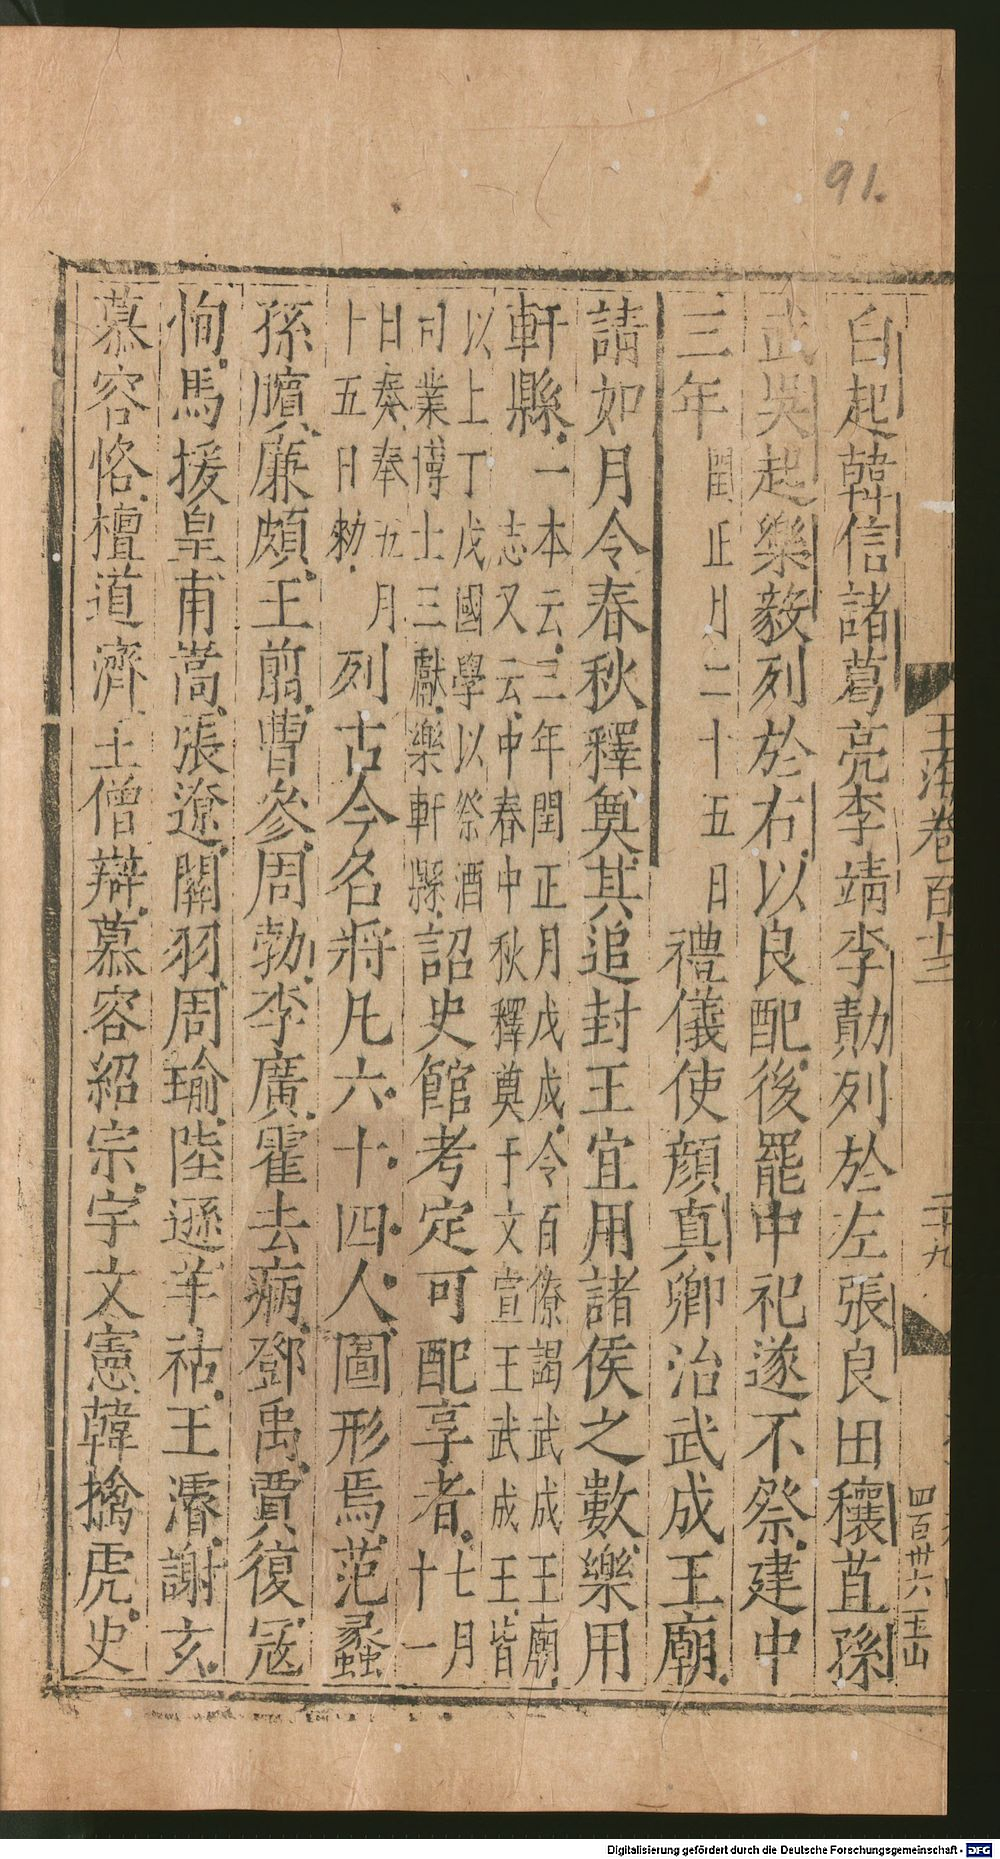 91.
玉海卷百十三
二十九
四百卅六 玉山
白起韓信諸葛亮李靖李勣列於左張良田穰苴孫
武吳起樂毅列於右以良配後罷中祀遂不祭建中
三年閏正月二十五日禮儀使顔真卿治武成王廟
請如月令春秋釋奠其追封王宜用諸侯之數樂用
軒縣一本云三年閏正月戊戌令百僚謁武成王廟
志又云中春中秋釋奠于文宣王武成王皆
以上丁戊國學以祭酒
司業博士三獻樂軒縣詔史館考定可配享者七月
十一
日奏奉五月
十五日勑列古今名將凡六十四人圖形焉范蠡
孫臏廉頗王翦曹參周勃李廣霍去病鄧禹賈復寇
恂馬援皇甫嵩張遼關羽周瑜陸遜羊祜王濬謝玄
慕容恪檀道濟王僧辯慕容紹宗宇文憲韓擒虎史
Digitalisierung gefördert durch die Deutsche Forschungsgemeinschaft - DFG